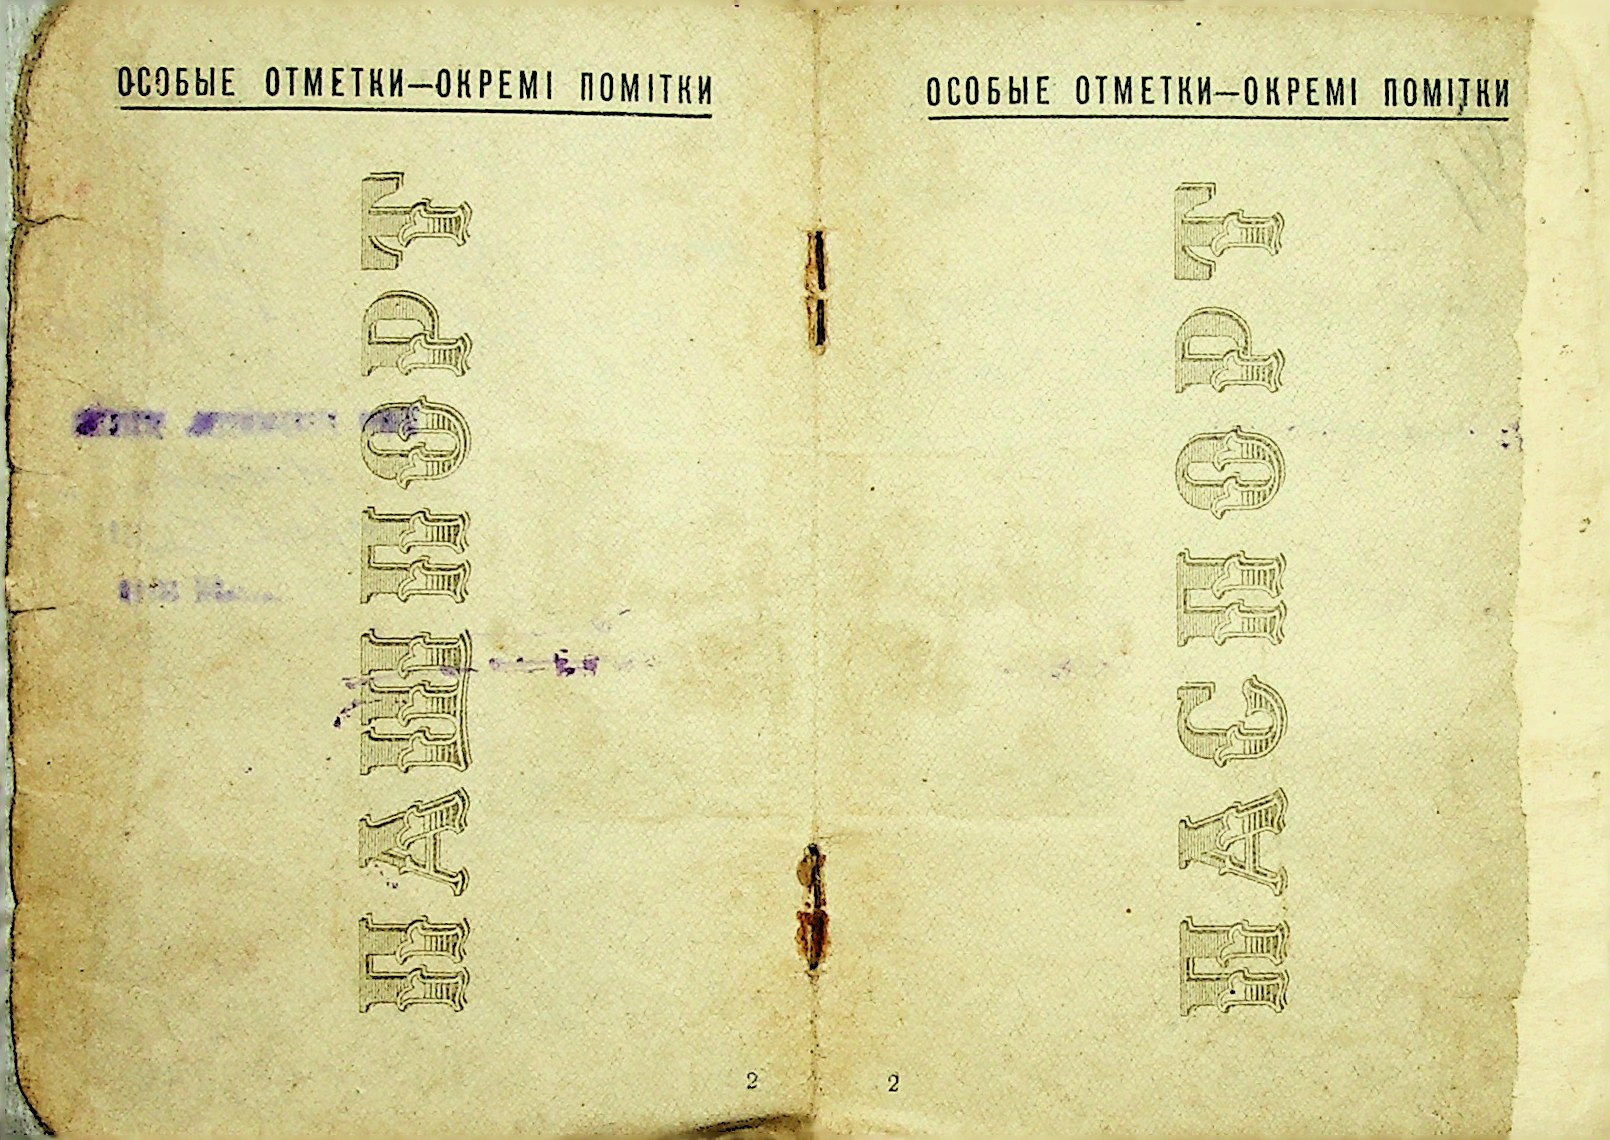 ОСОБЫЕ ОТМЕТКИ—ОКРЕМІ ПОМІТКИ
ПАШПОРТ
2
ОСОБЫЕ ОТМЕТКИ—ОКРЕМІ ПОМІТКИ
ПАСПОРТ
2